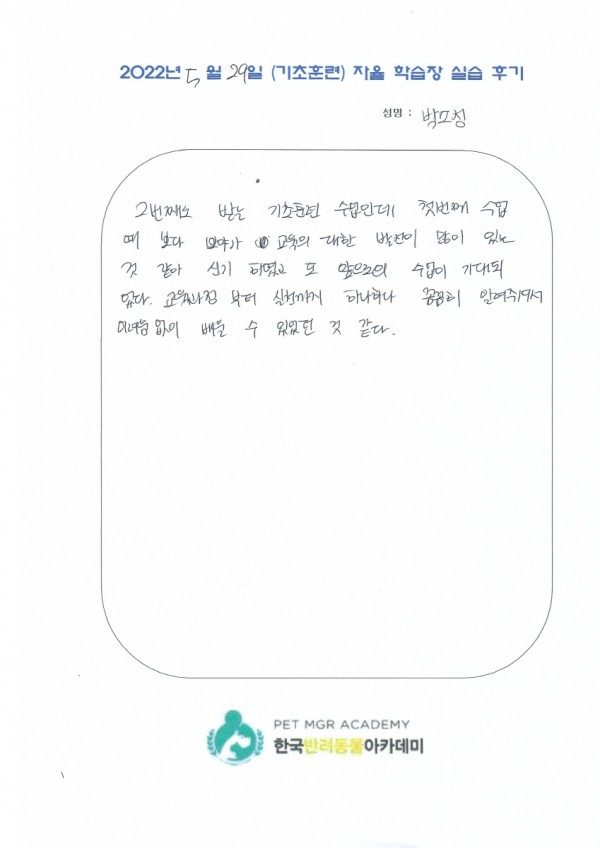 2022년 5월 29일 (기초훈련) 자율 학습장 실습 후기
성명 : 박도정
2번째로 받는 기초훈련 수업인데 첫번째 수업
때 보다 보야가 교육의 대한 발전이 많이 있는
것 같아 신기 하였고 또 앞으로의 수업이 기대되
었다. 교육과정 부터 실천까지 하나하나 꼼꼼히 알려주셔서
어려움 없이 배울 수 있었던 것 같다.
PET MGR ACADEMY
한국반려동물아카데미